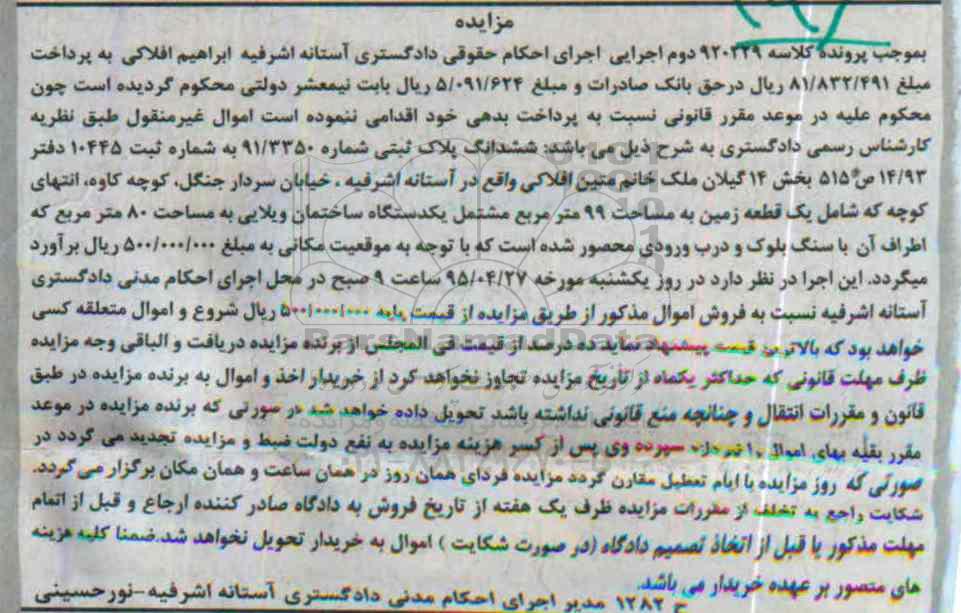 مزایده
بموجب پرونده کلاسه ۹۲۰۲۲۹ دوم اجرایی اجرای احکام حقوقی دادگستری آستانه اشرفیه ابراهیم افلاکی به پرداخت
مبلغ ۸۱/۸۳۲/۴۹۱ ریال درحق بانک صادرات و مبلغ ۵/۰۹۱/۶۲۴ ریال بابت نیمعشر دولتی محکوم گردیده است چون
محکوم علیه در موعد مقرر قانونی نسبت به پرداخت بدهی خود اقدامی ننموده است اموال غیرمنقول طبق نظریه
کارشناس رسمی دادگستری به شرح ذیل می باشد: ششدانگ پلاک ثبتی شماره ۹۱/۳۳۵۰ به شماره ثبت ۱۰۴۴۵ دفتر
۱۴/۹۳ ص ۵۱۵ بخش ۱۴ گیلان ملک خانم متین افلاکی واقع در آستانه اشرفیه ، خیابان سردار جنگل، کوچه کاوه، انتهای
کوچه که شامل یک قطعه زمین به مساحت ۹۹ متر مربع مشتمل یکدستگاه ساختمان ویلایی به مساحت ۸۰ متر مربع که
اطراف آن با سنگ بلوک و درب ورودی محصور شده است که با توجه به موقعیت مکانی به مبلغ ۵۰۰/۰۰۰/۰۰۰ ریال برآورد
میگردد. این اجرا در نظر دارد در روز یکشنبه مورخه ۹۵/۰۴/۲۷ ساعت ۹ صبح در محل اجرای احکام مدنی دادگستری
آستانه اشرفیه نسبت به فروش اموال مذکور از طریق مزایده از قیمت پایه ۵۰۰/۰۰۰/۰۰۰ ریال شروع و اموال متعلقه کسی
خواهد بود که بالاترین قیمت پیشنهاد نماید ده درصد از قیمت فی المجلس از برنده مزایده دریافت و الباقی وجه مزایده
ظرف مهلت قانونی که حداکثر یکماه از تاریخ مزایده تجاوز نخواهد کرد از خریدار اخذ و اموال به برنده مزایده در طبق
قانون و مقررات انتقال و چنانچه منع قانونی نداشته باشد تحویل داده خواهد شد در صورتی که برنده مزایده در موعد
مقرر بقیه بهای اموال را نپردازد سپرده وی پس از کسر هزینه مزایده به نفع دولت ضبط و مزایده تجدید می گردد در
صورتی که روز مزایده با ایام تعطیل مقارن گردد مزایده فردای همان روز در همان ساعت و همان مکان برگزار می گردد.
شکایت راجع به تخلف از مقررات مزایده ظرف یک هفته از تاریخ فروش به دادگاه صادر کننده ارجاع و قبل از اتمام
مهلت مذکور یا قبل از اتخاذ تصمیم دادگاه (در صورت شکایت ) اموال به خریدار تحویل نخواهد شد.ضمنا کلیه هزینه
های متصور بر عهده خریدار می باشد.
ج ۱۲۸۲ مدیر اجرای احکام مدنی دادگستری آستانه اشرفیه-نورحسینی
ParsNamadData